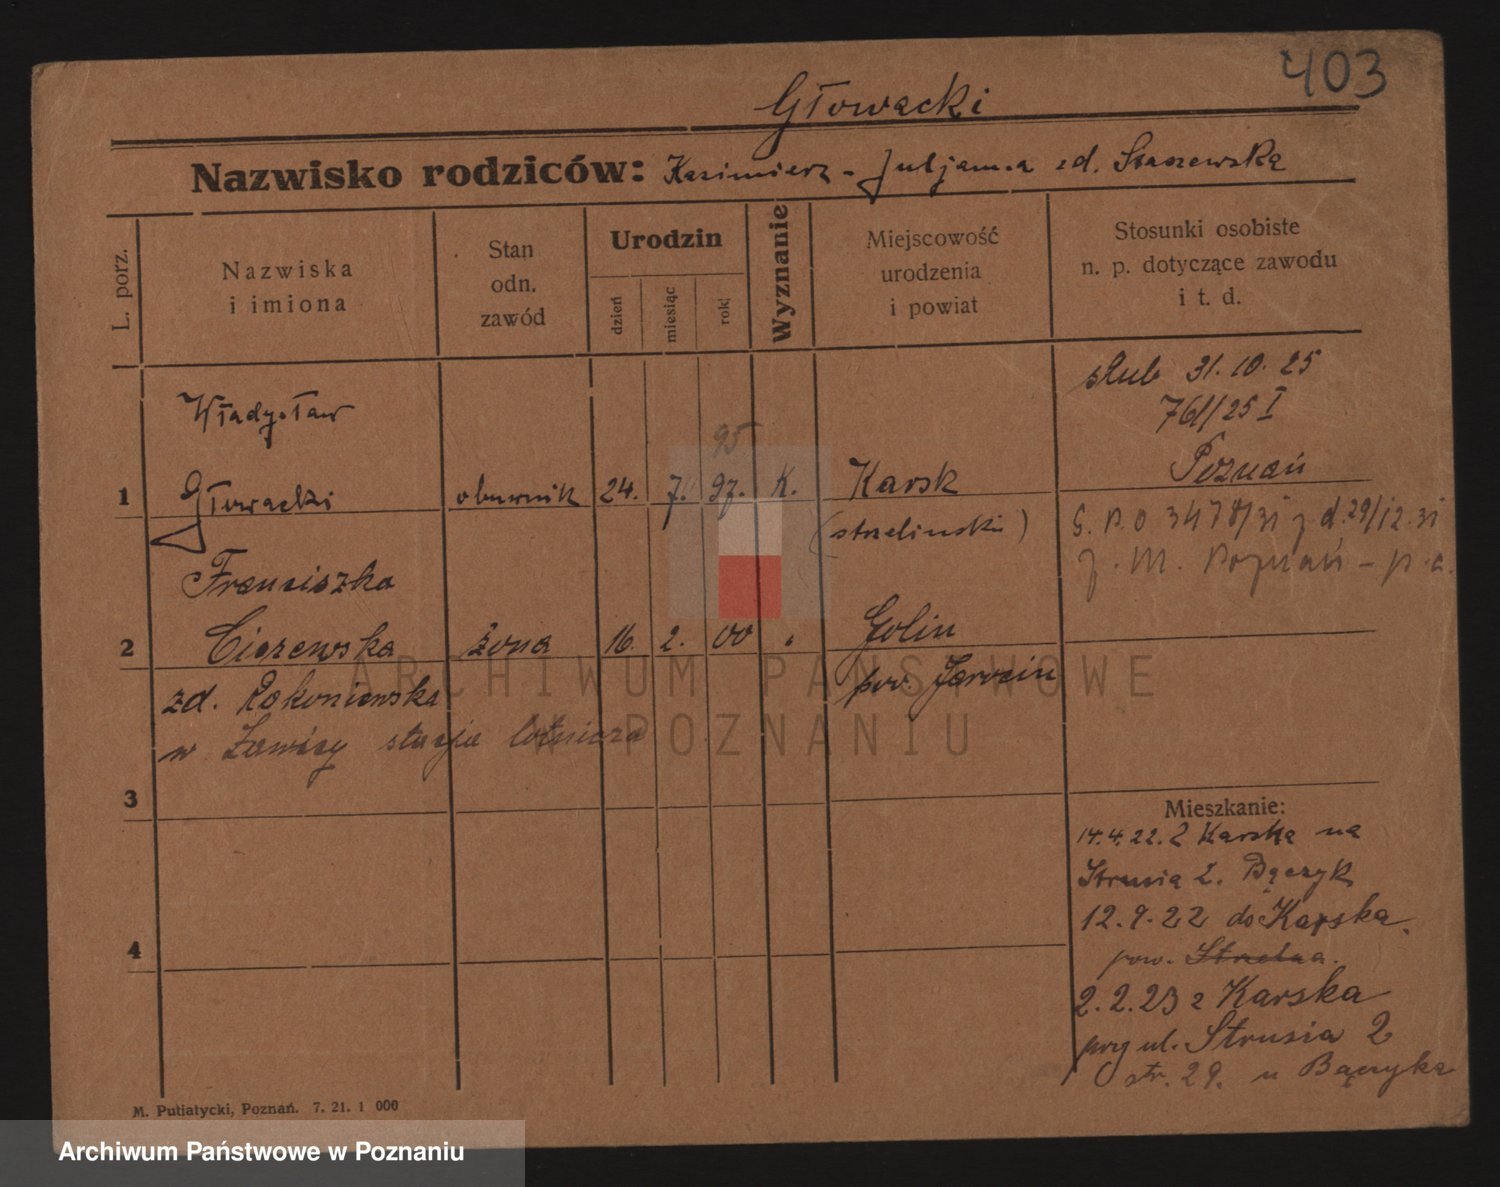 403
Głowacki
Nazwisko rodziców: Kazimierz - Juljanna zd. Staszewska
L. porz.
Nazwiska
i imiona
Stan
odn.
zawód
Urodzin
dzień
miesiąc
rok
Wyznanie
Miejscowość
urodzenia
i powiat
Stosunki osobiste
n. p. dotyczące zawodu
i t. d.
ślub 31. 10. 25
761/25 I
Poznań
Władysław
95
1 Głowacki obuwnik 24. 7. 97. K. Karsk
(strzeliński)
S. P. O 3478/31 z d. 29/12. 31
z. M. Poznań - p. a.
Franciszka
2 Ciszewska żona 16. 2. 00 " Golin
zd. Rokoniewska pow. Jarocin
w Ławicy stacja lotnicza
3
Mieszkanie:
14. 4. 22. z Karska na
Strusia 2. Bączyk
12. 9. 22 do Karska.
4
pow. Strzelna.
2. 2. 23 z Karska
przy ul. Strusia 2
str. 29. u Bączyka
M. Putiatycki, Poznań. 7. 21. 1 000
ARCHIWUM PAŃSTWOWE
W POZNANIU
Archiwum Państwowe w Poznaniu